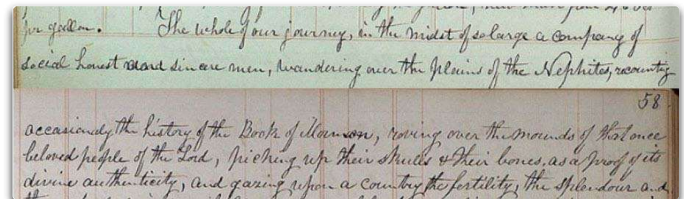 pr gallon. The whole of our journey, in the midst of so large a company of
social honest and sincere men, wandering over the plains of the Nephites, recounting
58
occasionaly the history of the Book of Mormon, roving over the mounds of that once
beloved people of the Lord, picking up their skulls & their bones, as a proof of its
divine authenticity, and gazing upon a country the fertility, the splendour and